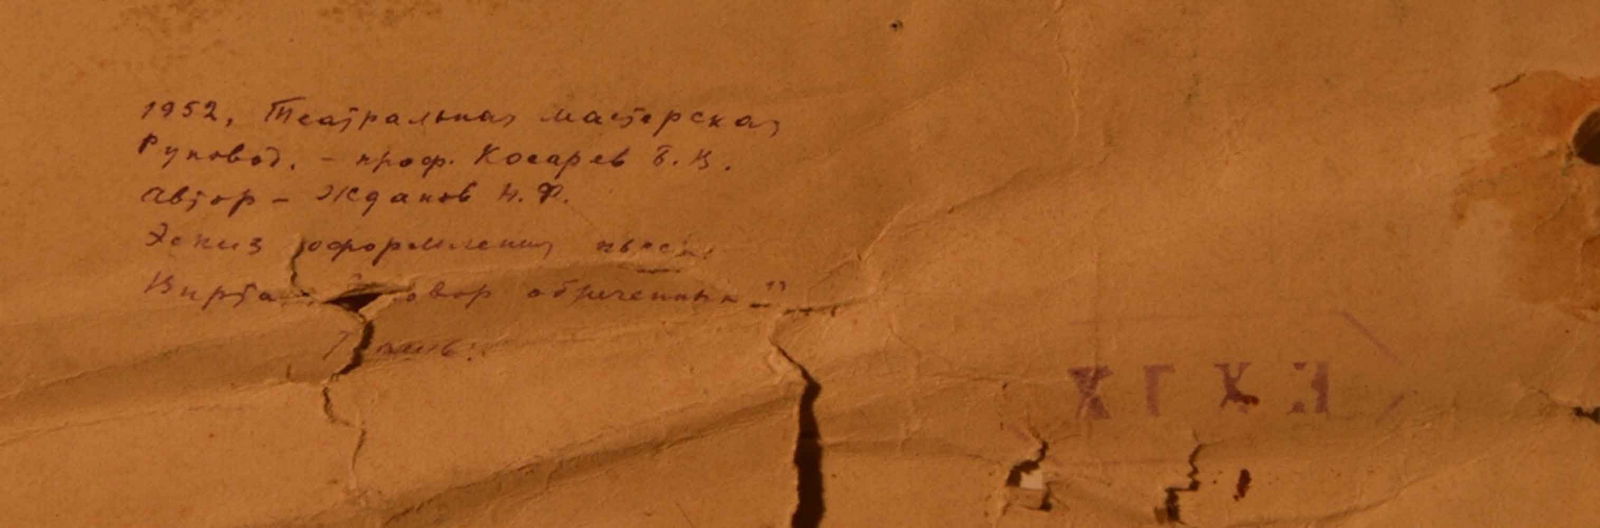 1952, Театральная мастерская
Руковод. - проф. Косарев Б.В.
Автор - Жданов Н.Ф.
Эскиз оформления пьесы
Вирта "Заговор обреченных"